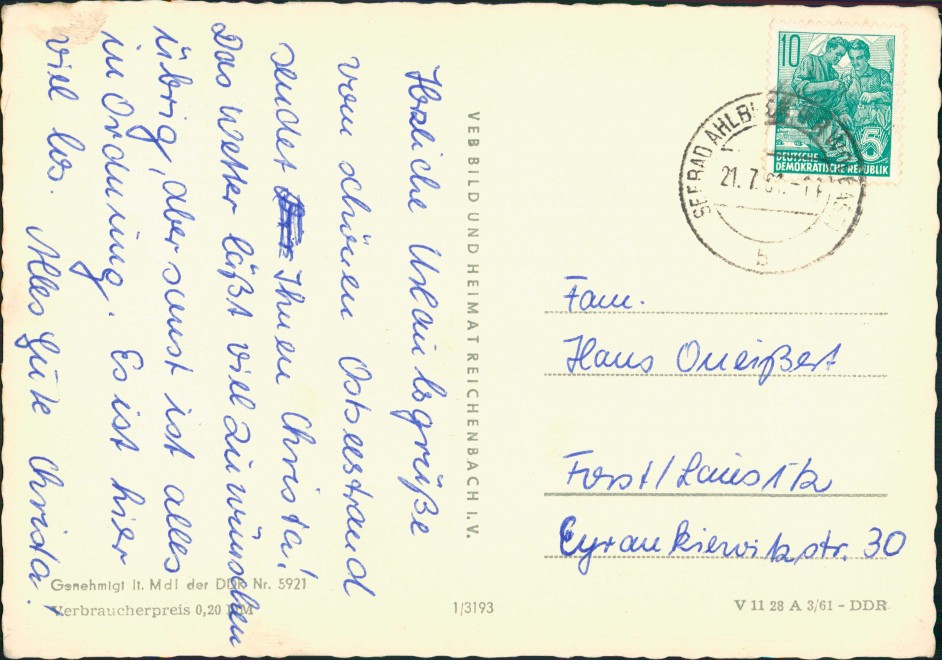 Herzliche Urlaubsgrüße
vom schönen Ostseestrand
sendet Ihnen Christa!
Das Wetter läßt viel zu wünschen
übrig, aber sonst ist alles
in Ordnung. Es ist hier
viel los. Alles Gute Christa.
VEB BILD UND HEIMAT REICHENBACH I. V.
10
5
DEUTSCHE
DEMOKRATISCHE REPUBLIK
SEEBAD AHLBECK
21. 7. 61.
b
Fam.
Hans Oneißert
Forst/Lausitz
Cyrankiewitzstr. 30
Genehmigt lt. MdI der DDR Nr. 5921
Verbraucherpreis 0,20 DM
1/3193
V 11 28 A 3/61 - DDR